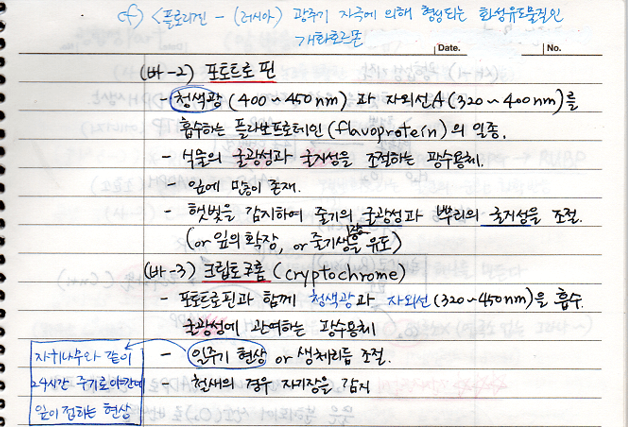 cf) <플로리겐 - (러시아) 광주기 자극에 의해 형성되는 화성유도물질인
개화호르몬
Date. No.
(바-2) 포토트로핀
- 청색광 (400~450nm) 과 자외선A (320~400nm)를
흡수하는 플라보프로테인 (flavoprotein) 의 일종.
- 식물의 굴광성과 굴지성을 조절하는 광수용체.
- 잎에 많이 존재.
- 햇빛을 감지하여 줄기의 굴광성과 뿌리의 굴지성을 조절.
(or 잎의 확장, or 줄기생장을 유도)
(바-3) 크립토크롬 (cryptochrome)
- 포토트로핀과 함께 청색광과 자외선 (320~450nm)을 흡수.
굴광성에 관여하는 광수용체
- 일주기 현상 or 생체리듬 조절.
- 철새의 경우 자기장을 감지
자귀나무와 같이
24시간 주기로 야간에
잎이 접하는 현상